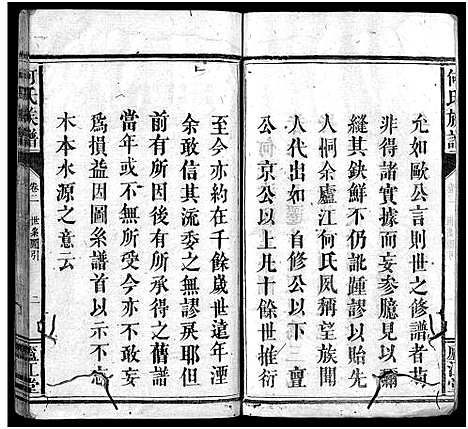 何氏族譜
卷二
世系圖引
廬江堂
允如歐公言則世之修譜者苟
非得諸實據而妄參臆見以彌
縫其鈌鮮不仍訛踵謬以貽先
人恫余廬江何氏夙稱望族聞
人代出如
自修公以下三亶
公何京公以上凡十餘世推衍
至今亦約在千餘歲世遠年湮
余敢信其流委之無謬戾耶但
前有所因後有所承得之舊譜
當年或不無所受今亦不敢妄
爲損益因圖系譜首以示不忘
木本水源之意云
何氏族譜
卷二
世系圖引
二
廬江堂